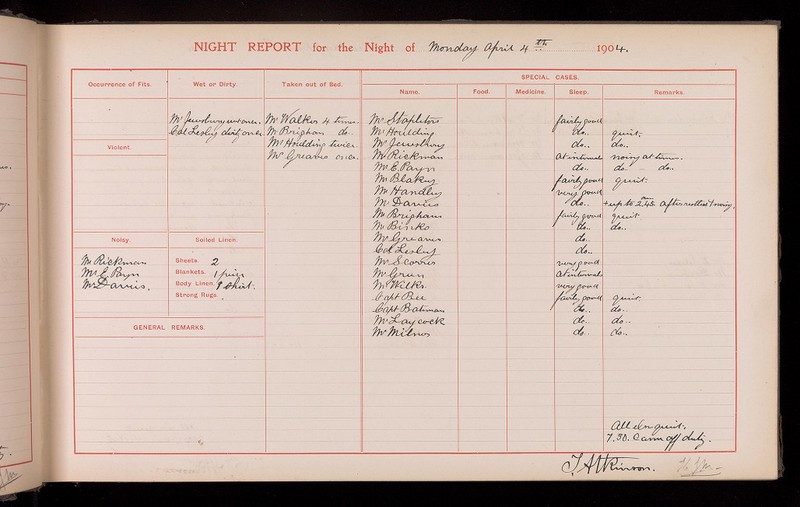 NIGHT REPORT for the Night of Monday April 4th 1904.
Occurrence of Fits.
Wet or Dirty.
Mr Jewsbury wet once.
Col Lesley dirty once.
Taken out of Bed.
Mr Walker 4 times.
Mr Brigham do
Mr Houlding twice.
Mr Greaves once.
Violent.
Noisy
Mr Rickman
Mr E. Payn
Mr Davies.
Soiled Linen.
Sheets. 2
Blankets. 1 pair
Body Linen. 1 Shirt.
Strong Rugs.
GENERAL REMARKS.
SPECIAL CASES.
Name. Food. Medicine. Sleep. Remarks.
Mr Stapleton fairly good
Mr Houlding do.. quiet.
Mr Jewsbury do.. do..
Mr Rickman at intervals noisy at times.
Mr E. Payn do.. do do.
Mr Blakey fairly good quiet.
Mr Handley very good
Mr Davies do.. up to 2.45. after restless & noisy.
Mr Brigham fairly good quiet.
Mr Binks do.. do..
Mr Greaves do..
Col Lesley do..
Mr S. very good
Mr Green at intervals
Mr Walker very good
Capt Bell fairly good quiet.
Capt Bateman do.. do..
Mr Laycock do.. do..
Mr Milner do.. do..
All else quiet.
7.30. Came off duty.
T. Atkinson.